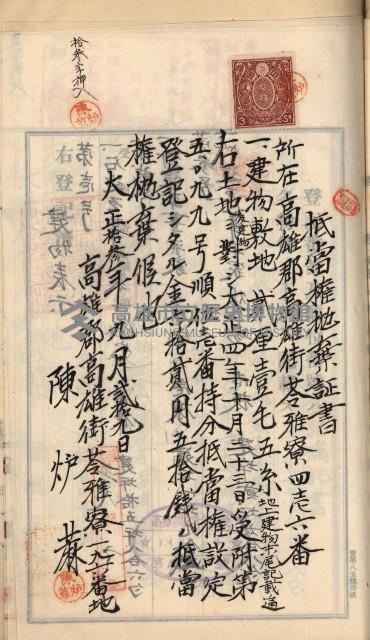 抵當權抛棄証書
所在高雄郡高雄街苓雅寮四壱六番
一、建物敷地 貳厘壹毛五糸 地上建物末尾記載通
右土地建物ニ對シ大正四年十月二十三日受附第
五〇九九号順位壱番持分抵當權設定
登記シタル金拾貳円五拾銭ノ抵當
權抛棄候也
大正拾参年九月貳拾九日
高雄郡高雄街苓雅寮一九一番地
陳炉
拾参字挿入
3 Sn
高雄市立歷史博物館
KAOHSIUNG MUSEUM OF HISTORY